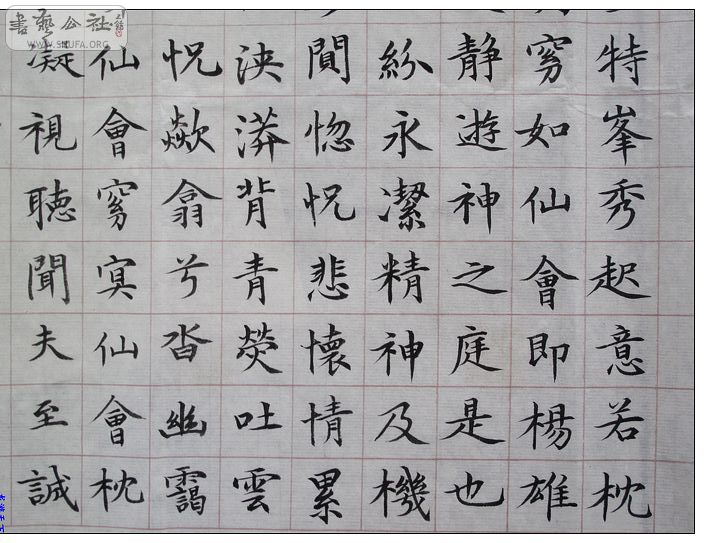 書藝公社
WWW.SHUFA.ORG
特峯秀起意若枕
窈如仙會即楊雄
靜遊神之庭是也
紛永潔精神及機
惚怳悲懷情累
泱漭背青熒吐雲
怳欻翕兮沓幽靄
仙會窈冥仙會枕
凝視聽聞夫至誠